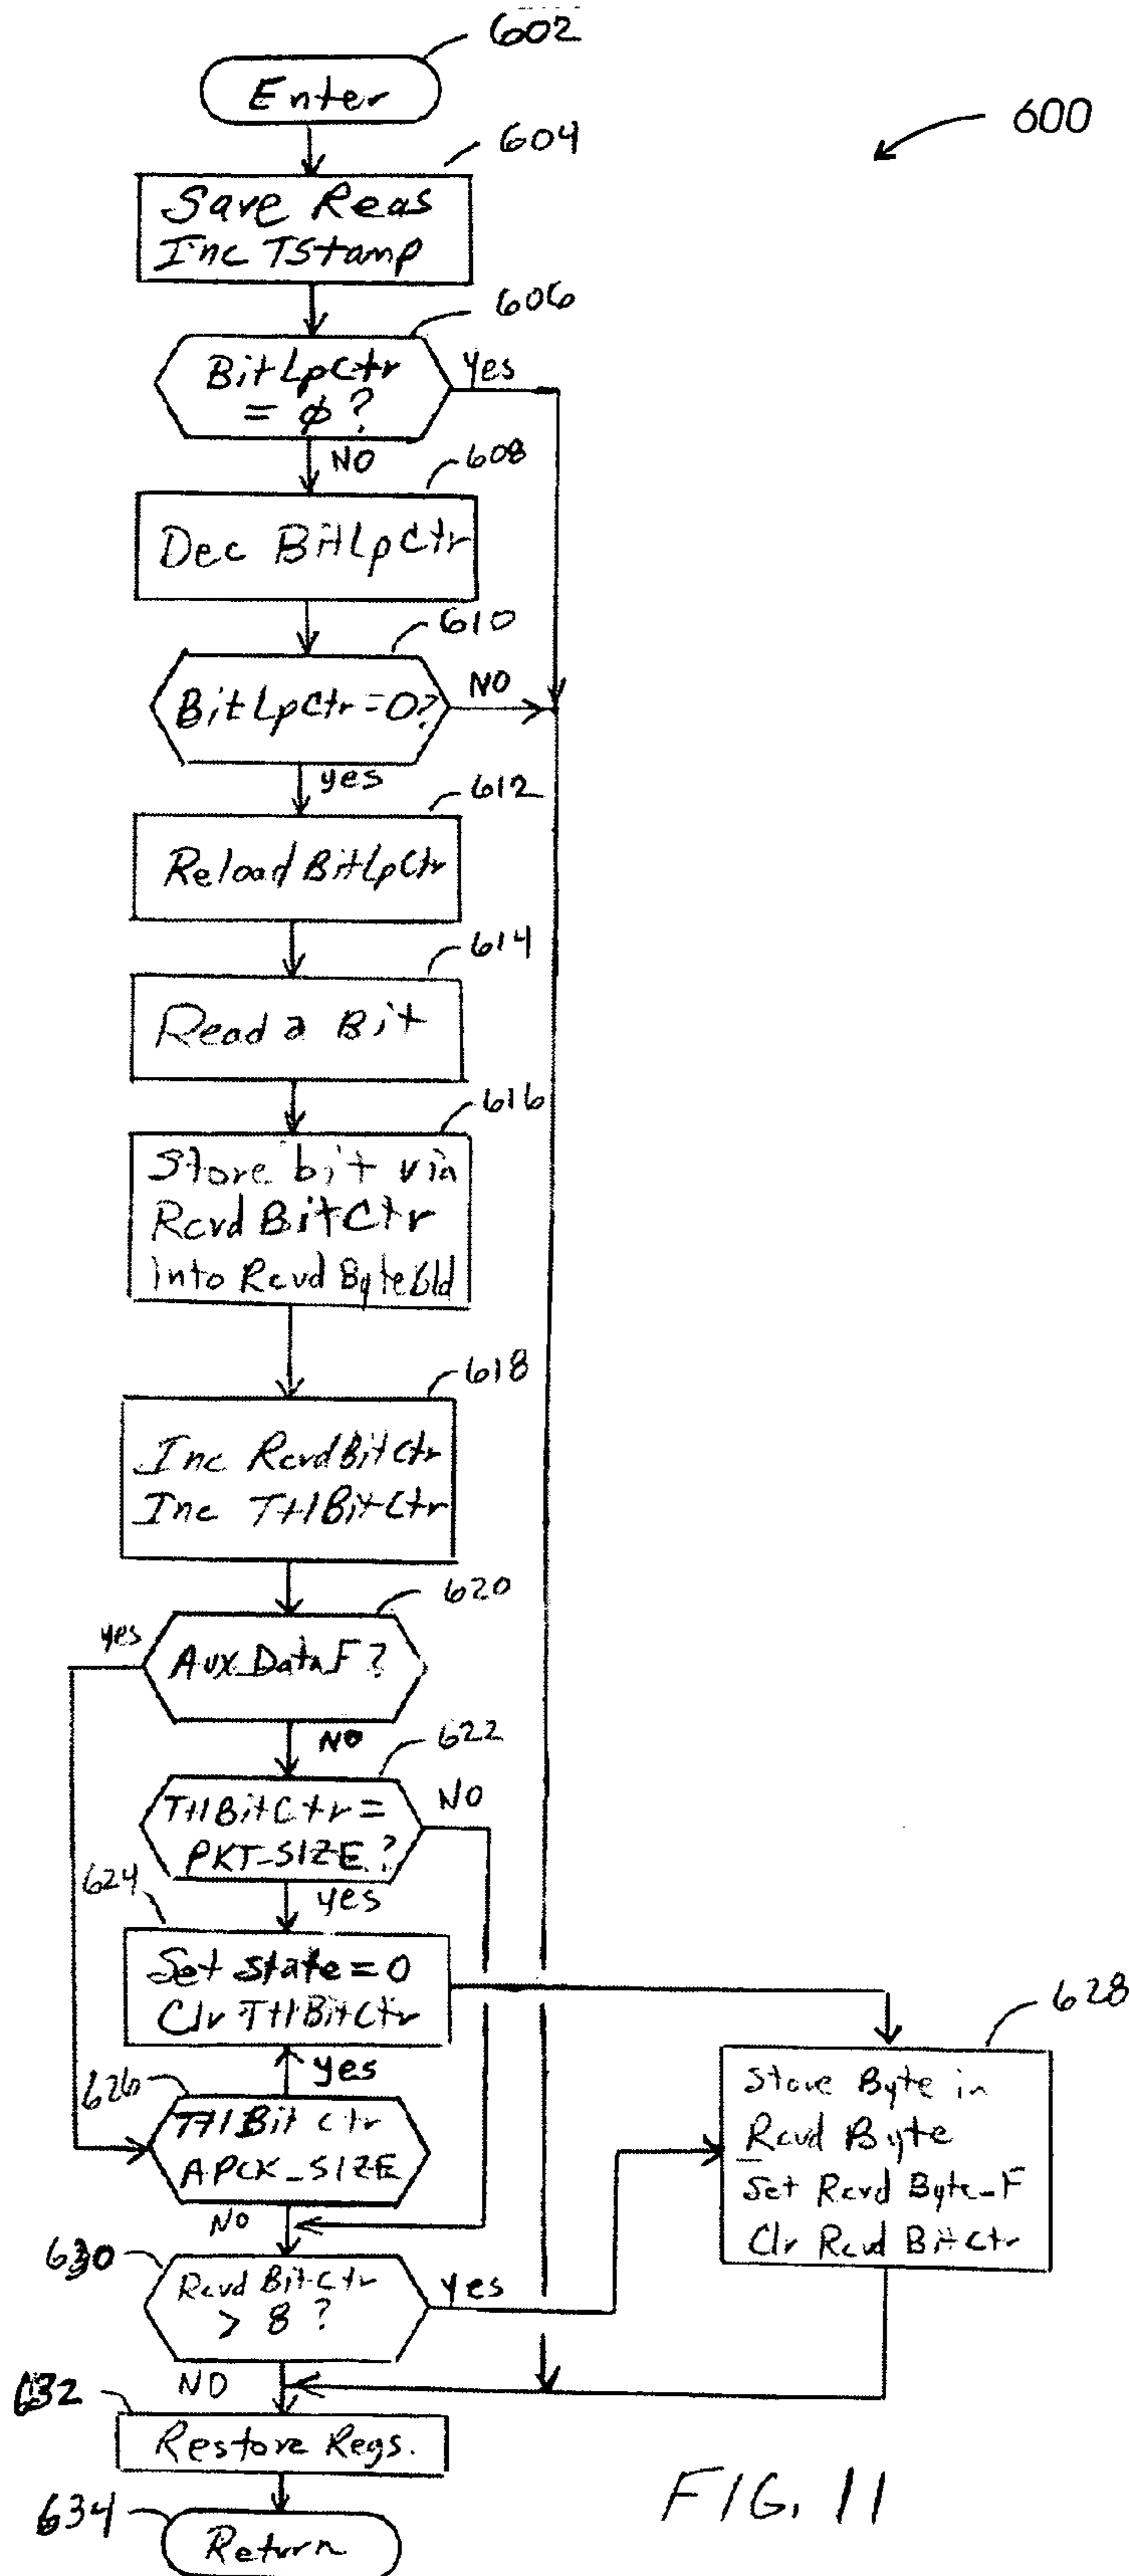 602
Enter
600
604
Save Regs
Inc TStamp
606
BitLpCtr
= ø ?
Yes
NO
608
Dec BitLpCtr
610
BitLpCtr=0?
NO
yes
612
Reload BitLpCtr
614
Read a Bit
616
Store bit via
Rcvd BitCtr
into Rcvd Bytebld
618
Inc RcvdBitCtr
Inc TtlBitCtr
620
yes
Aux_DataF?
NO
622
TtlBitCtr =
PKT_SIZE?
NO
624
yes
Set state=0
Clr TtlBitCtr
628
yes
626
TtlBit ctr
APCK_SIZE
Store Byte in
Rcvd Byte
Set Rcvd Byte_F
Clr Rcvd BitCtr
NO
630
Rcvd BitCtr
> 8 ?
Yes
NO
632
Restore Regs.
634
Return
FIG. 11